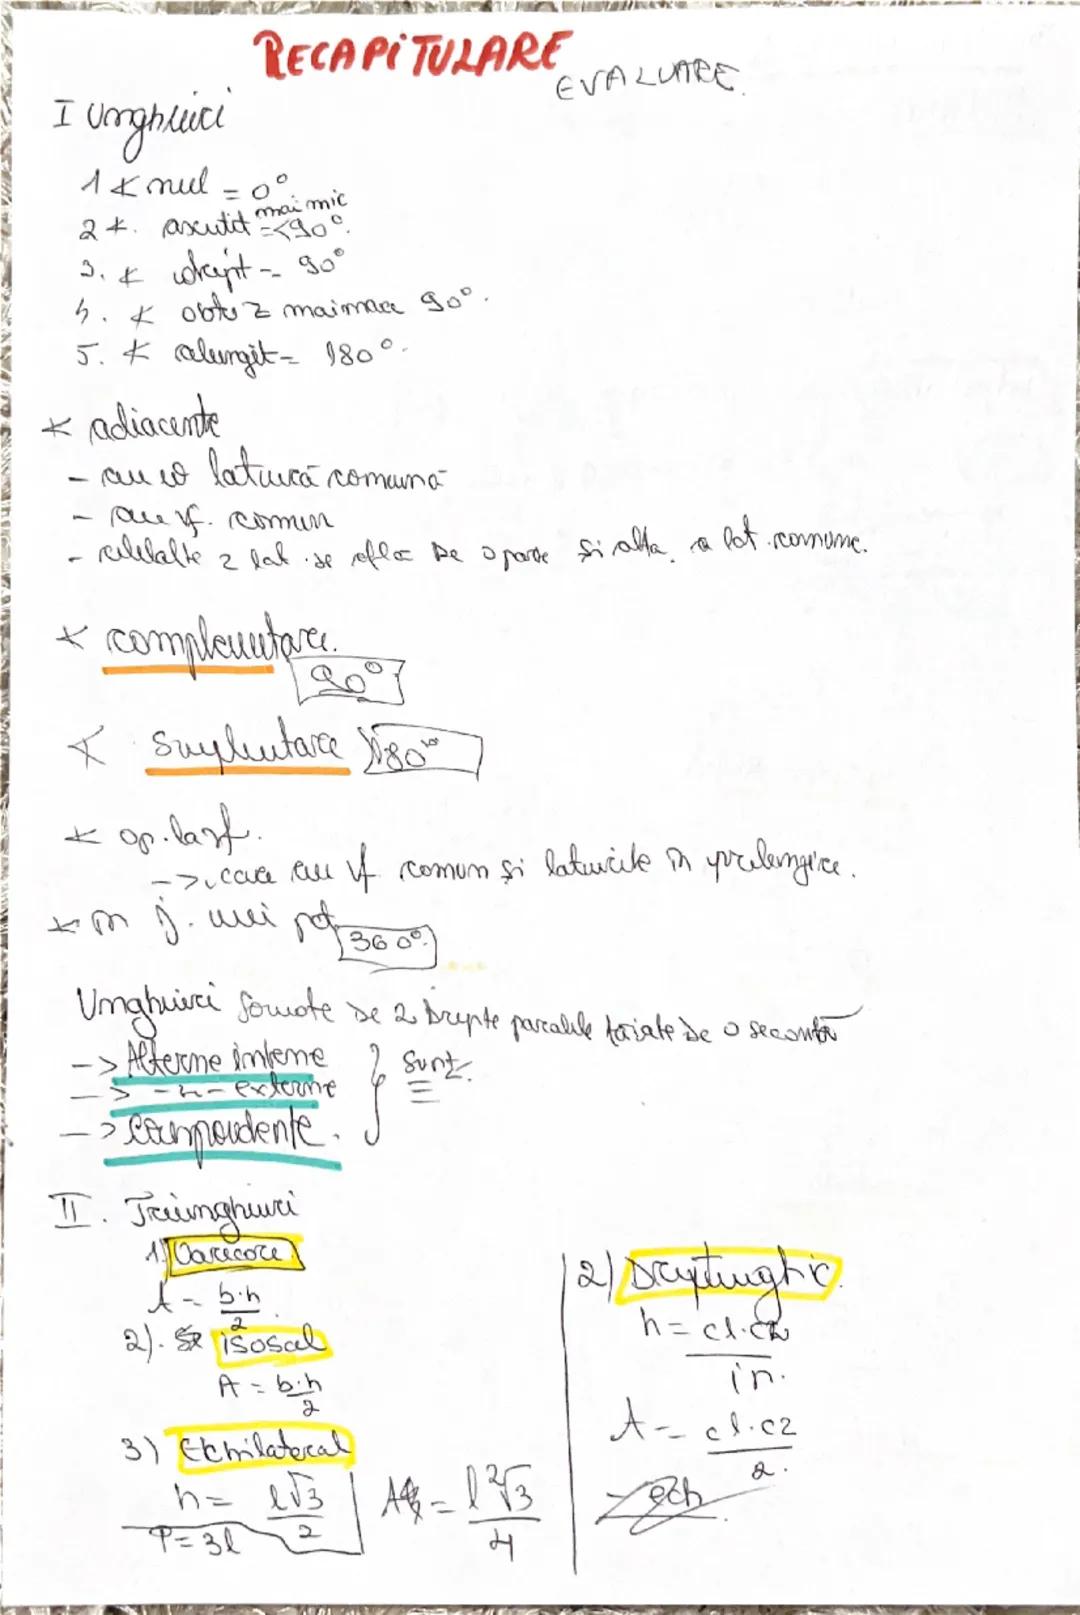 RECAPITULARE
EVALUARE.
I Unghiuri
1 ∢ nul = 0°
2 ∢. ascutit = mai mic <90°.
3. ∢ drept = 90°
4. ∢ obtuz mai mare 90°.
5. ∢ alungit = 180°.
∢ adiacente
- au o latură comună
- au vf. comun
- celelalte 2 lat. se afla de o parte si alta a lat. comune.
∢ complementare. 90°
∢ suplementare 180°
∢ op. la vf.
-> care au vf comun și laturile în prelungire.
∢ în j. unui pct. 360°.
Unghiuri formate de 2 drepte paralele taiate de o secantă
-> Alterne interne
-> -"- externe
-> Corespondente.
} sunt ≡
II. Triunghiuri
1) Oarecare
A = b·h/2.
2). isoscel
A = b·h/2
3) Echilateral
h = l√3/2
P = 3l
A = l²√3/4
2) Dreptunghic.
h = c1·c2/ip.
A = c1·c2/2.